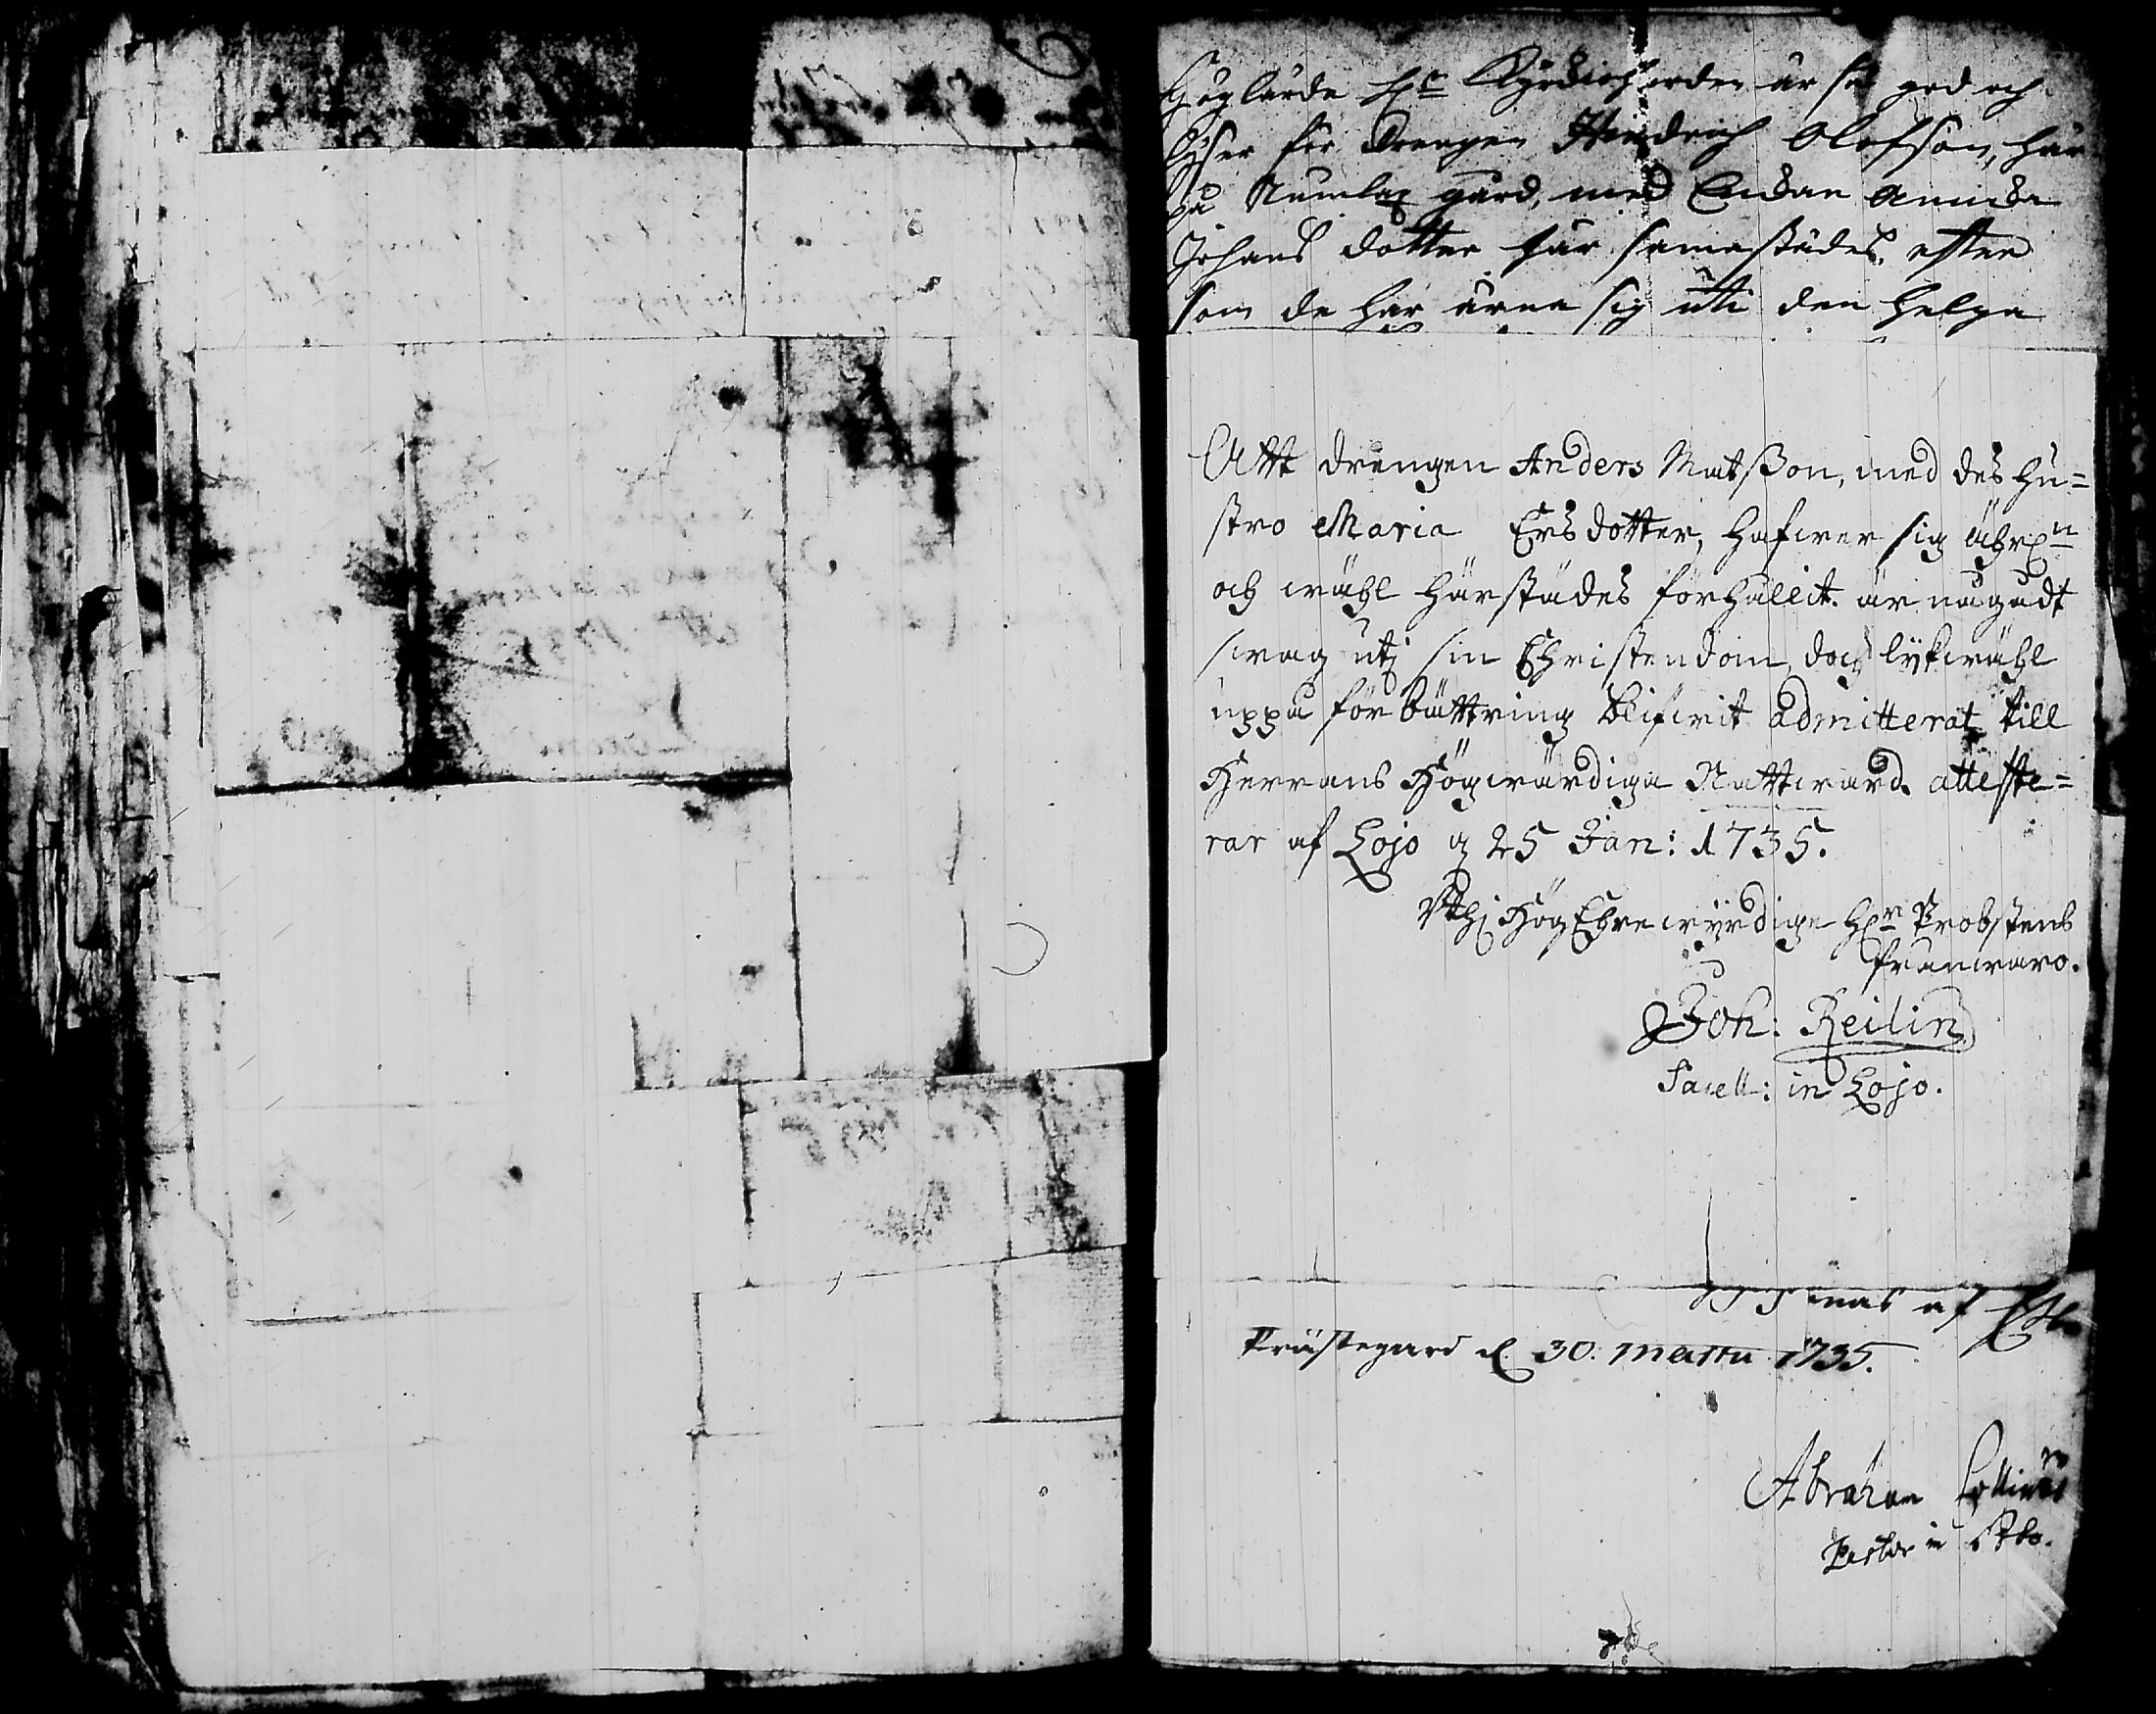 Höglärde H:r Kyrckioherden är så god och
lyser för Drengen Hindrich Olofson, här
på Numlax gård, med Enckan Annicka
Johans dotter här samastädes, efter
som de här ärna sig uti den helga
Att drengen Anders Matsson, med des hu=
stro Maria Ersdotter, hafwer sig ährl:n
och wähl härstädes förhållit. är någådt
swag utj sin Christendom, doch lykwähl
uppå förbättring blifwit admitterat till
Herrans Högwärdiga Nattward. atteste=
rar af Lojo d 25 Jan: 1735.
Uthj HögEhrewyrdige H:r Probstens
frånwaro.
Joh: Reilin
Sacell: in Lojo.
af
Prästegård d. 30. Martii 1735.
Abraham
Pastor in